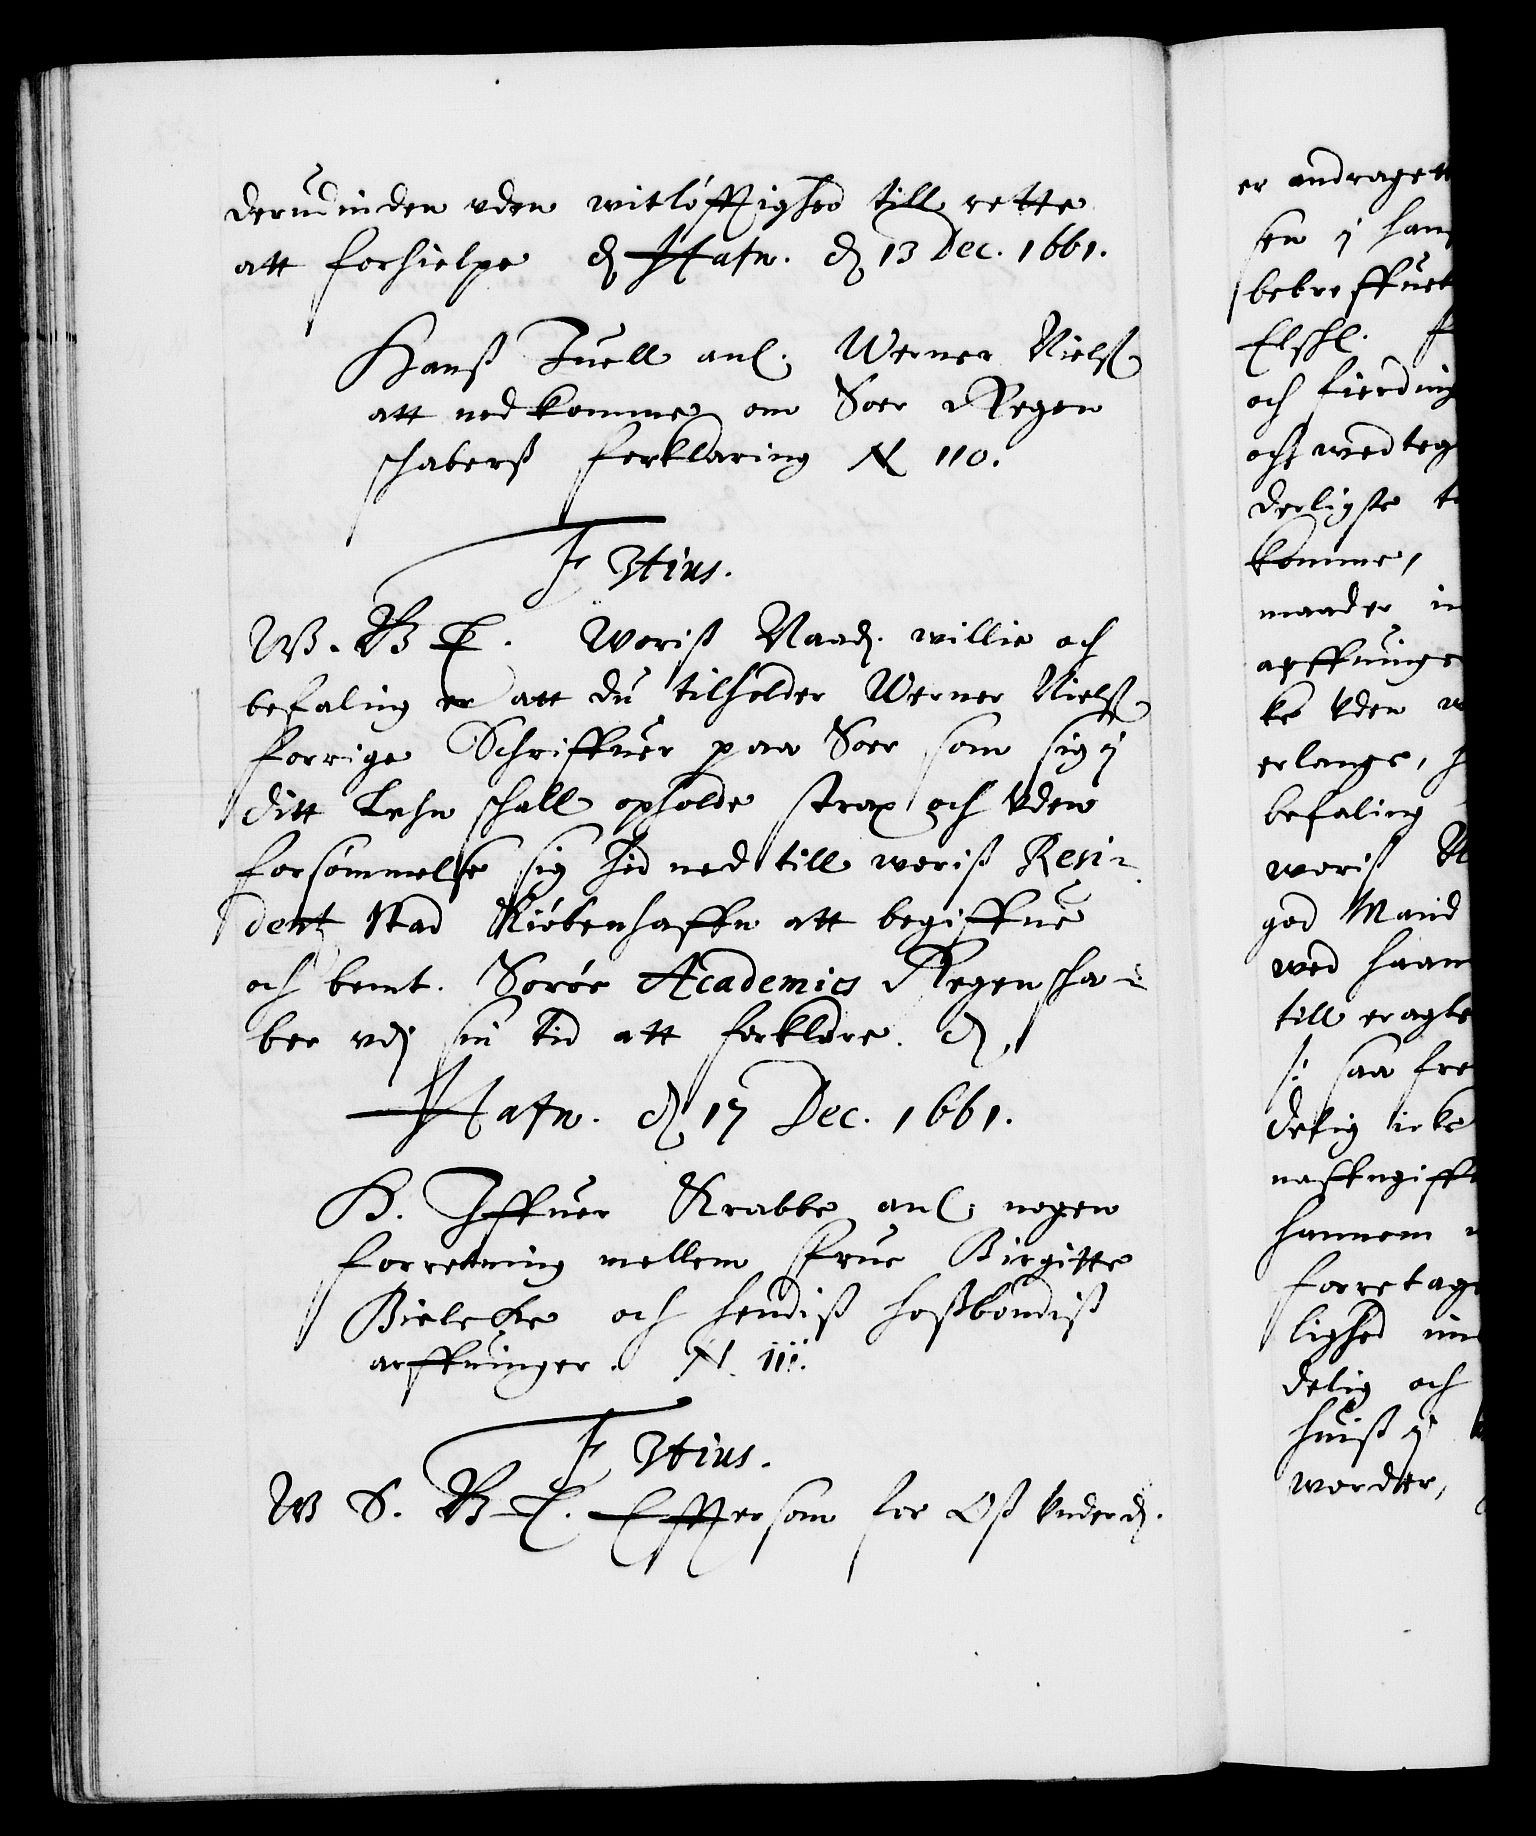 derudinden uden witløfftighed till rette
att forhielpe d Hafn. d 13 Dec. 1661.
Hanß Juell anl. Werner Nielß
att nedkomme om Soer Regen
schaberß forklaring N 110.
F 3tius.
W. B E. Woriß Naad. willie och
befaling er att du tilholder Werner Nielß
forrige Schriffuer paa Soer som sig j
ditt Lehn schall opholde strax och uden
forsømmelse sig hid ned till woriß Resi-
dentz Stad Kiøbenhaffn att begiffue
och bemt. Sorøe Academies Regenscha-
ber udj sin tid att forklare. d.
Hafn. d 17 Dec. 1661.
H. Iffuer Krabbe anl. nogen
forretning mellem Frue Birgitte
Bielcke och hendiß hoßbondiß
arffuinger. N. 111.
F 3tius.
W S. B E. Effter som for Oß underd.
er andragett
sen j hanß
bekreffuet
Elskl.
och fierding
och wedteg
derligste
komme,
maader
arffuinge
ke uden
erlange,
befaling
woriß
god Mand
wed haan
till eragte
/: saa fre
delig icke
naffngiffu
hannem
forretage
lighed
delig och
huiß j
worder,